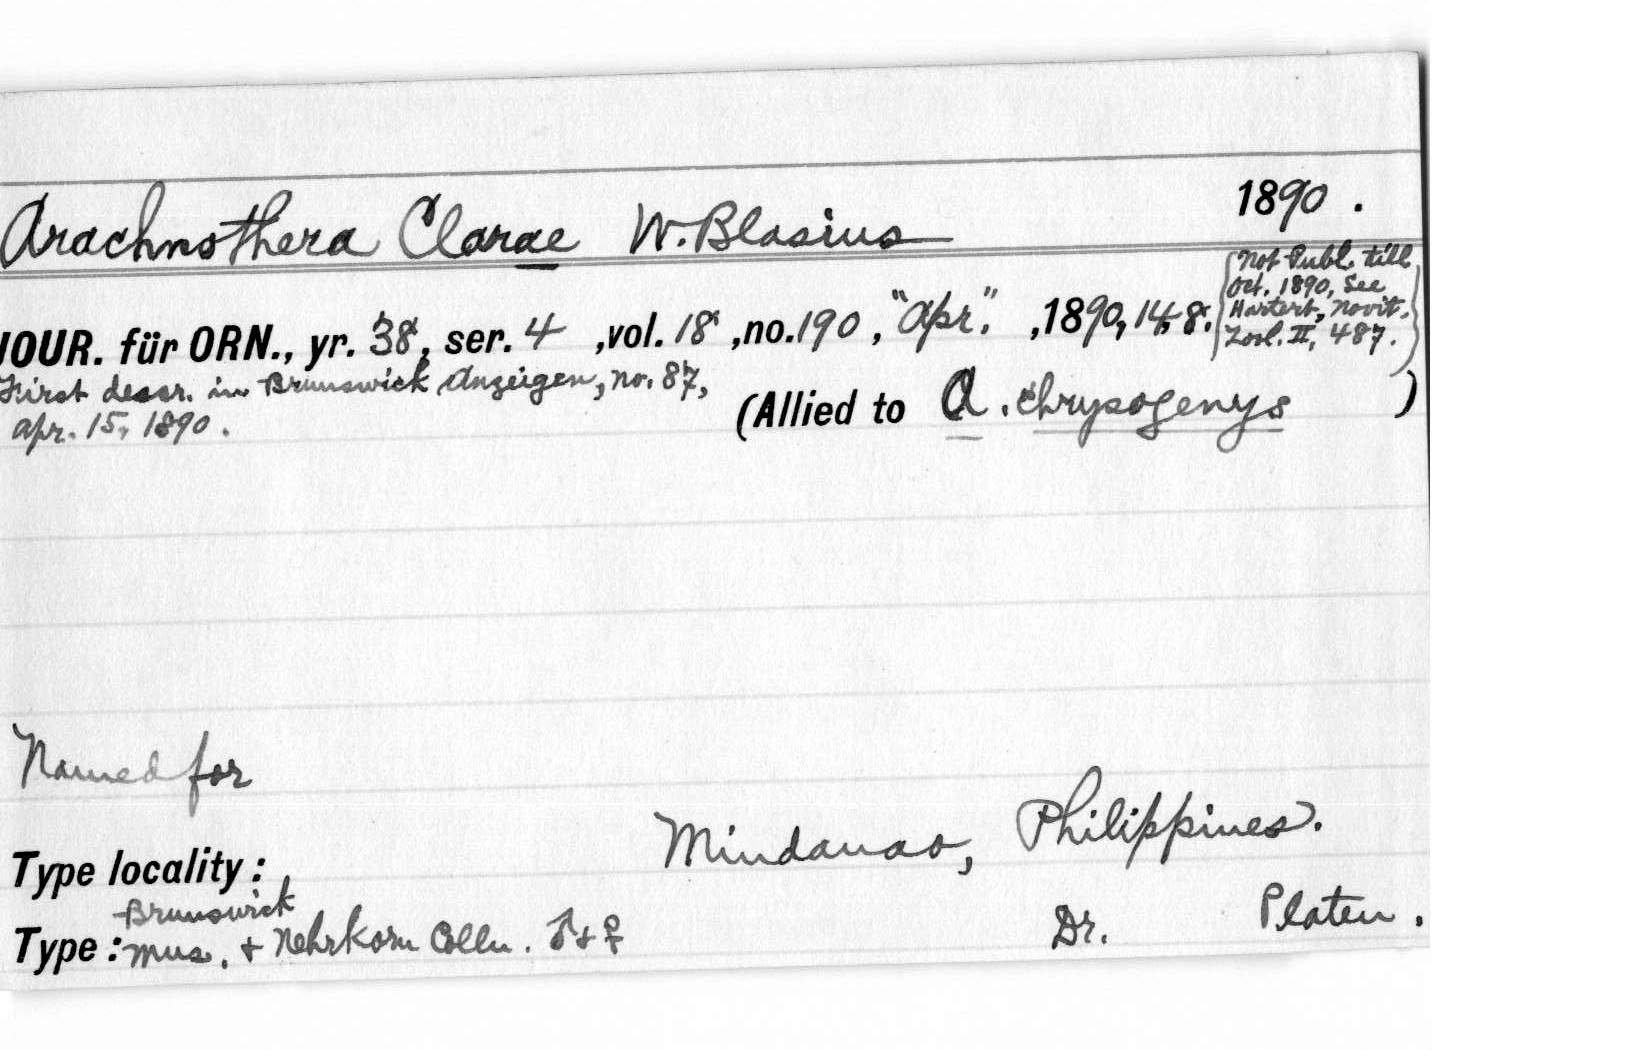 Arachnothera Clarae W. Blasius 1890.
JOUR. für ORN., yr. 38, ser. 4 ,vol. 18 ,no.190 , "Apr." ,1890, 148.
{Not Publ. till
Oct. 1890, See
Hartert, Novit.
Zool. II, 487.}
First descr. in Brunswick Anzeigen, no. 87,
Apr. 15, 1890.
(Allied to A. chrysogenys )
Named for
Type locality: Mindanao, Philippines.
Type: Brunswick Mus. + Nehrkorn Colln. ♂ + ♀ Dr. Platen.